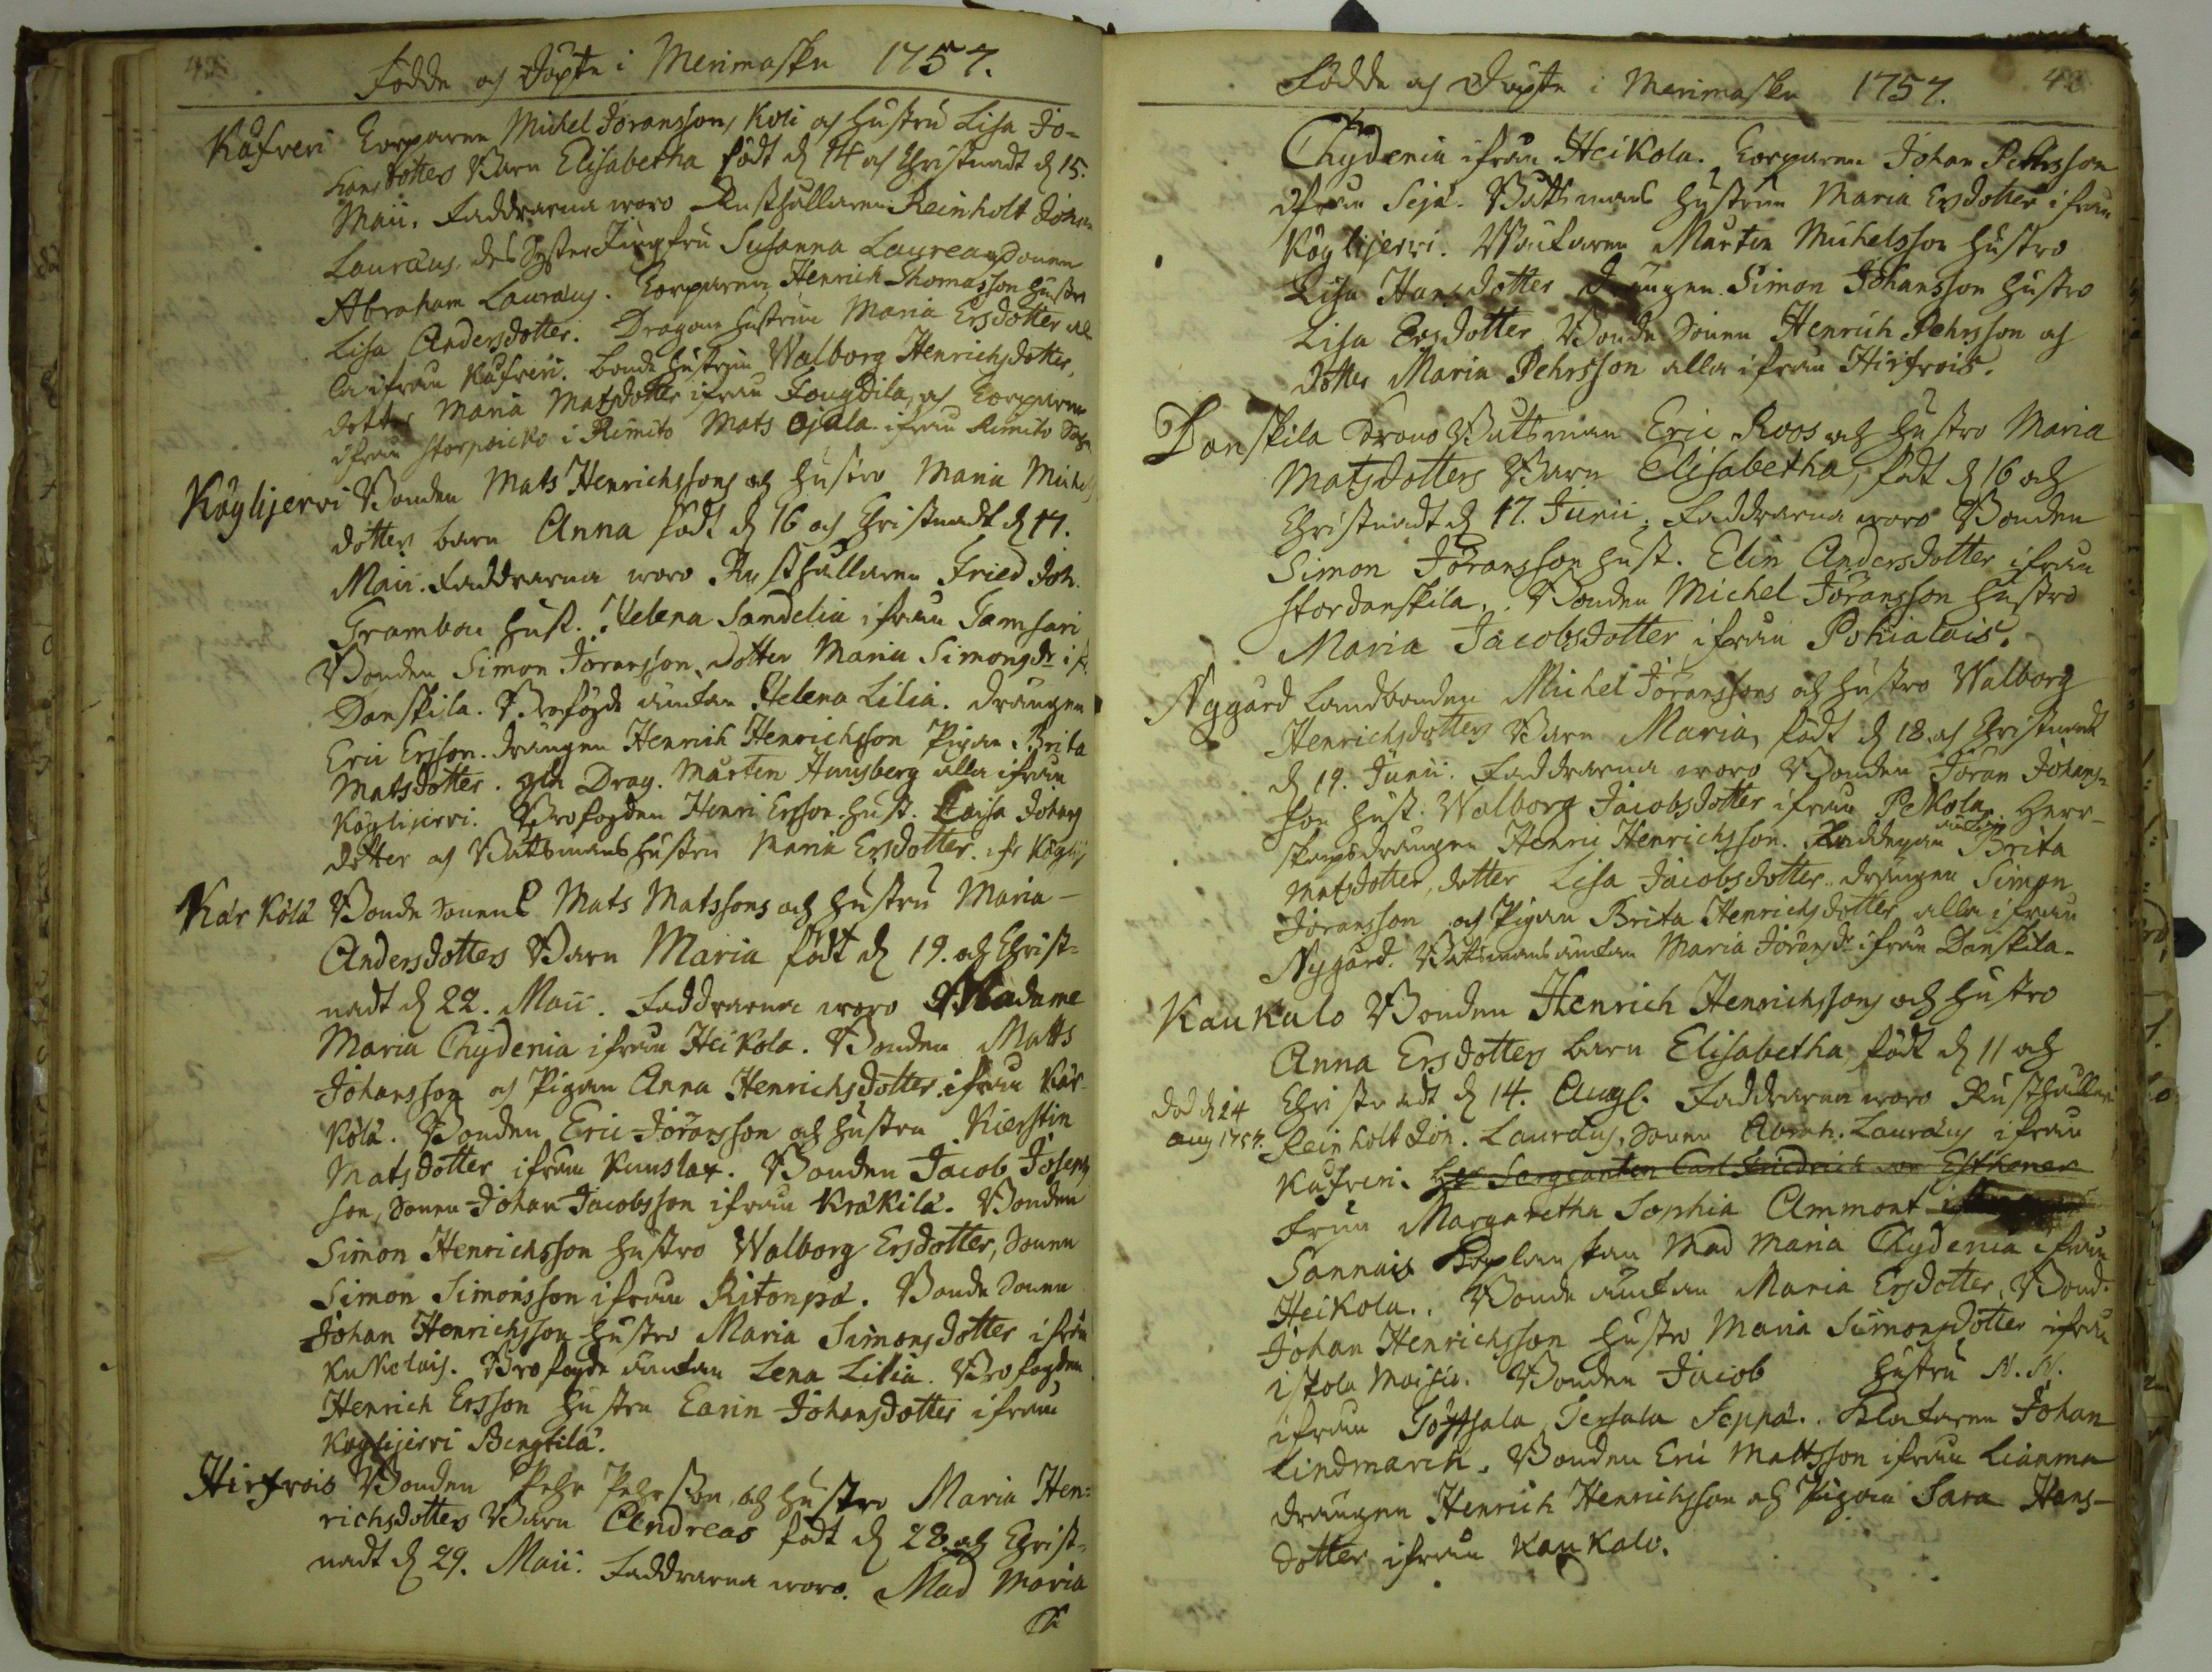 42
Födde och Döpte i Merimasku 1757.
Kåfveri Torparen Michel Jöransson Koli och hustru Lisa Jo-
hansdotters Barn Elisabetha födt d. 14 och Christnadt d 15.
Maii. Faddrarna woro Rusthållaren Reinholt Johan
Lauræus, des Syster Jungfru Susanna Laurea, Sonen
Abraham Lauræus. Torparen Henrich Thomasson hustru
Lisa Andersdotter. Dragone hustrun Maria Ersdotter al-
la ifrån Kåfveri. bonde hustrun Walborg Henrichsdotter,
dotter Maria Matsdotter ifrån Fougdila, och Torparen
ifrån Storpoicko i Rimito Mats Ojala ifrån Rimito
Köylijervi Bonden Mats Henrichssons och hustro Maria Michels
dotters barn Anna födt d 16 och Christnadt d 17.
Maii. Faddrarna woro Rusthållaren Fried Joh.
Grambou hust. Helena Sandelia ifrån Tamsari
Bonden Simon Jöransson, dotter Maria Simonsdr ifr.
Danskila. Brofogde änkan Helena Lilia. drängen
Eric Ersson. drängen Henrich Henrichsson Pigan Brita
Matsdotter. Drag. Mårten Hunsberg alla ifrån
Köylijervi. Brofogden Henri Ersson hust. Caisa Johans
dotter och Båtsmans hustru Maria Ersdotter. ifr Köylij
Kärkölä Bonde sonens Mats Matssons och hustru Maria -
Andersdotters Barn Maria födt d 19. och Christ-
nadt d 22. Maii. Faddrarna woro Madame
Maria Chydenia ifrån Heikola. Bonden Matts
Johansson och Pigan Anna Henrichsdotter ifrån Kär-
kölä. Bonden Eric Jöransson och hustru Kierstin
Matsdotter ifrån Kunslax. Bonden Jacob Josephs
son, Sonen Johan Jacobsson ifrån Kräkilä. Bonden
Simon Henrichsson hustro Walborg Ersdotter, Sonen
Simon Simonsson ifrån Ritonpä. Bonde Sonen
Johan Henrichsson hustro Maria Simonsdotter ifrån
Kukolais. Brofogde änkan Lena Lilia. Brofogden
Henrich Ersson hustru Carin Johansdotter ifrån
Köylijervi Bengtilä.
Hirfrois Bonden Pehr Pehrsson och hustro Maria Hen-
richsdotters Barn Andreas födt d 28. och Christ-
nadt d 29. Maii. Faddrarna woro. Mad Maria
43
Födde och Döpte i Merimasku 1757.
Chydenia ifrån Heikola. Torparen Johan Pehrsson
ifrån Sejä. Båtsmans hustrun Maria Ersdotter ifrån
Köylijervi. Mårten Michelsson hustro
Lisa Hansdotter drängen Simon Johansson hustro
Lisa Ersdotter, Bonde Sonen Henrich Pehrsson och
dotter Maria Pehrsson alla ifrån Hirfrois.
Danskila Båtsman Eric Roos och hustro Maria
Matsdotters Barn Elisabetha, födt d 16 och
Christnadt d 17. Junii. Faddrarna woro Bonden
Simon Jöransson hust. Elin Andersdotter ifrån
Stordanskila. Bonden Michel Jöransson hustro
Maria Jacobsdotter ifrån Pohialais.
Nygård Landbonden Michel Jöranssons och hustro Walborg
Henrichsdotters Barn Maria, födt d 18. och Christnadt
d 19. Junii. Faddrarna woro Bonden Jöran Johans-
son hust. Walborg Jacobsdotter ifrån Pekola. Herr-
skapsdrängen Henric Henrichsson. änkan Brita
Matsdotter, dotter Lisa Jacobsdotter. drängen Simon
Jöransson och Pigan Brita Henrichsdotter alla ifrån
Nygård. Båtsmans änkan Maria Jöransdr ifrån Danskila.
Kaukalo Bonden Henrich Henrichssons och hustro
Anna Ersdotters barn Elisabetha, födt d 11 och
död d 24 Christnadt d 14. Aug. Faddrarna woro Rusthållaren
aug 1757. Reinholt Joh. Lauræus, Sonen Abrah. Lauræus ifrån
Kåfveri. Hr Sergeanten Carl Friedrich von Essthener
fruu Margaretha Sophia Ammont
Sannais Mad Maria Chydenia ifrån
Heikola. Bonde änkan Maria Ersdotter, Bond.
Johan Henrichsson hustro Maria Simonsdotter ifrån
Iskola Moisio. Bonden Jacob hustru N. N.
ifrån Tersala Seppä. Johan
Lindmarck. Bonden Eric Mattsson ifrån Lianma
drängen Henrich Henrichsson och Pigan Sara Hans-
dotter ifrån Kaukalo.